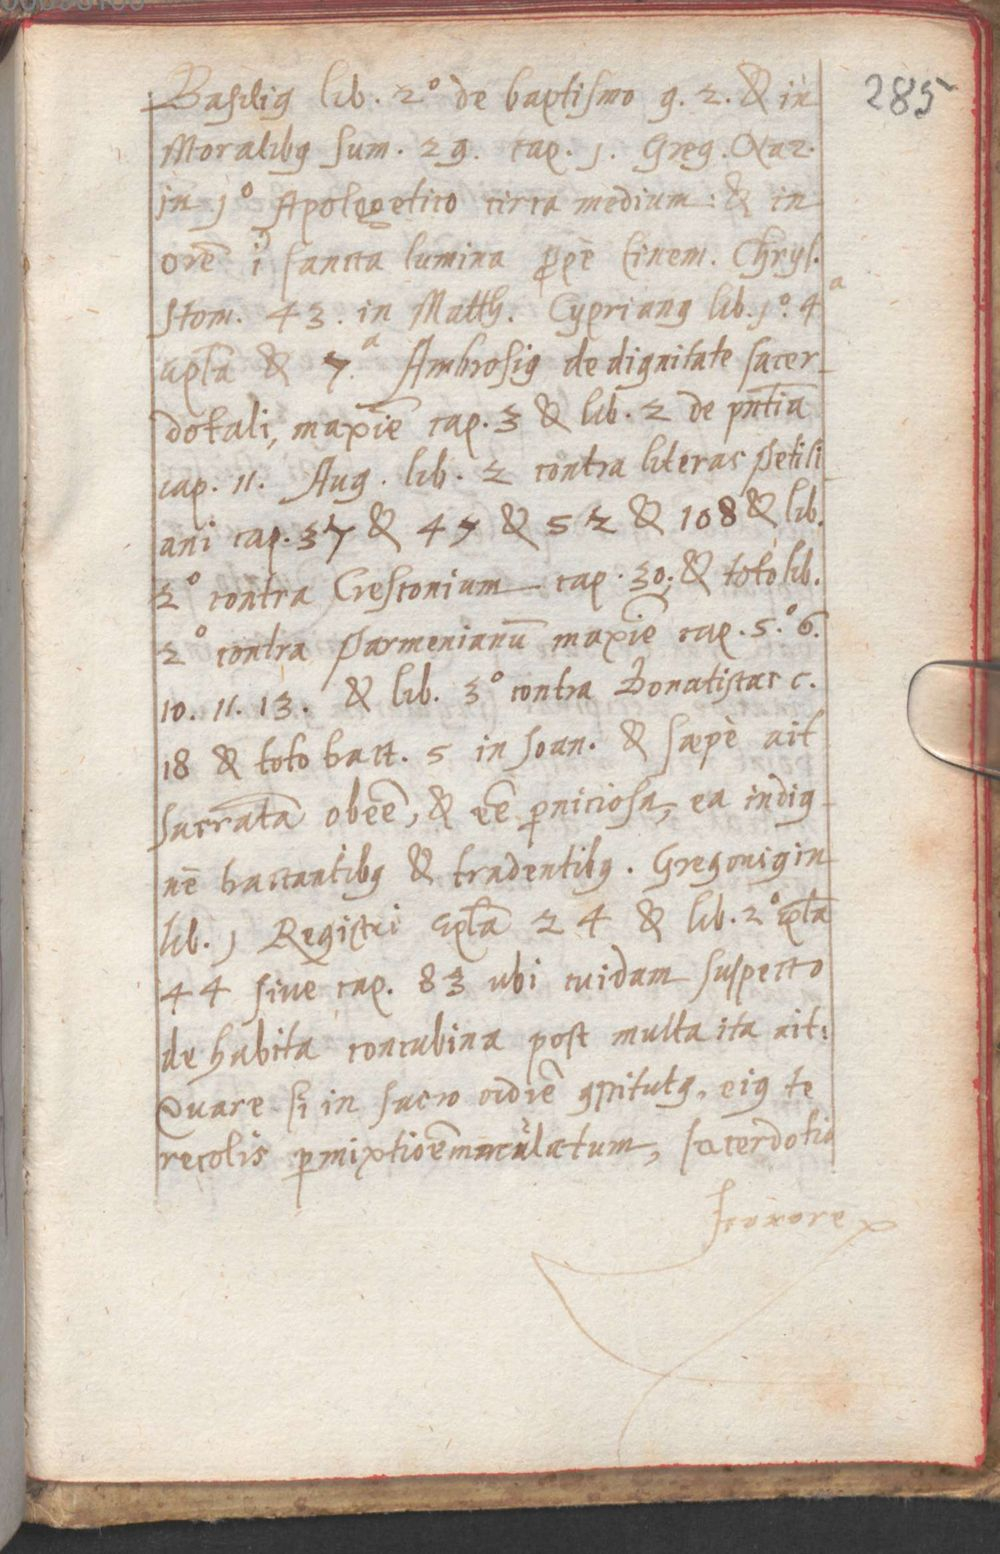 285
Basili9 lib. 2º de baptismo q. 2. & in
Moralib9 sum. 29. cap. 1. Greg. Naz.
in 1º Apologetico circa medium: & in
orē ĩ sancta lumina ꝓpè finem. Chrys.
hom. 43. in Matth. Cyprian9 lib. 1º. 4ª
& 7ª. Ambrosi9 de dignitate sacer
dotali, maxiē cap. 3 & lib. 2 de pn̄tia
cap. 11. Aug. lib. 2 contra literas Petili
ani cap. 37 & 47 & 52 & 108 & lib.
2º contra Cresconium cap. 30; & toto lib.
2º contra Parmenianū maxiē cap. 5.º 6.
10. 11. 13. & lib. 3º contra Donatistas c.
18 & toto tract. 5 in Joan. & sæpè ait
sacrāta obeē, & eē ꝑniciosa, ea indig
nē tractantib9 & tradentib9. Gregori9 in
lib. 1 Registri Epl̄a 24 & lib. 2º Epl̄a
44 sive cap. 83 ubi cuidam suspecto
de habita concubina post multa ita ait:
Quare si in sacro ordiē 9stitut9, ei9 te
recolis ꝑmixtioē maculatum, sacerdotio